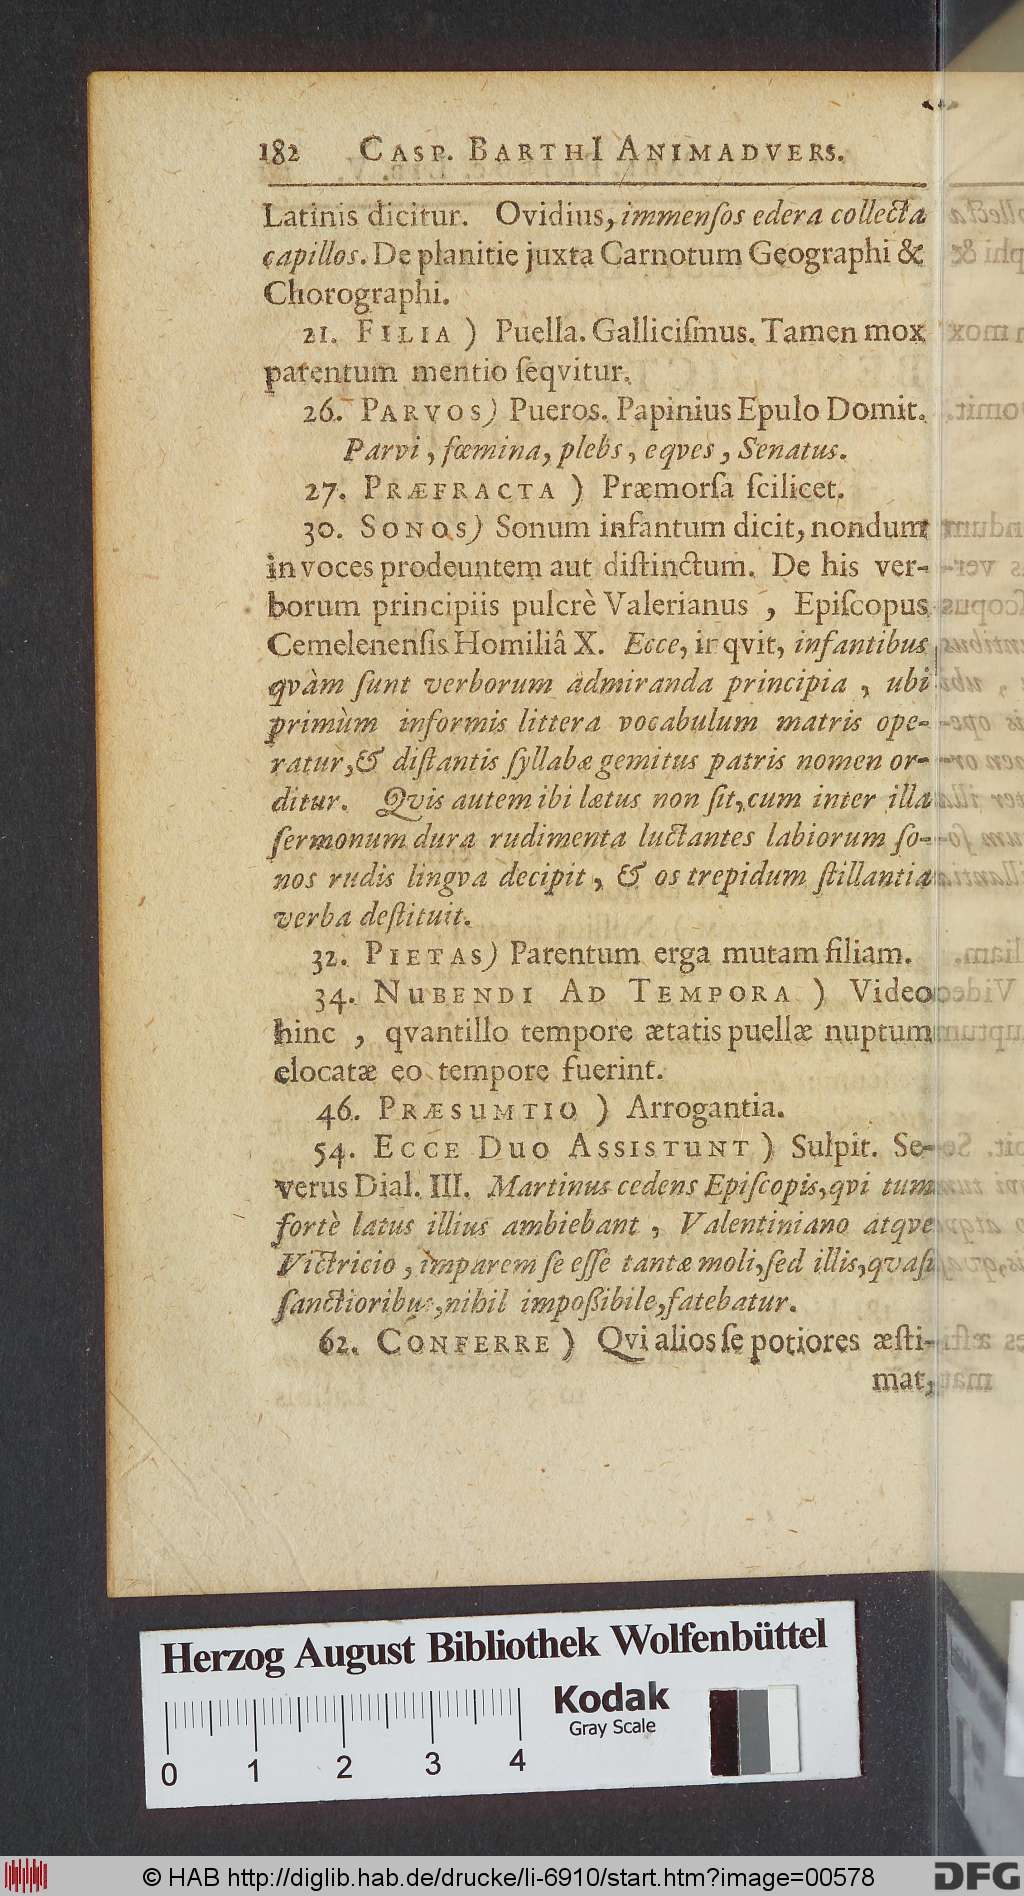 182 CASP. BARTHI ANIMADVERS.
Latinis dicitur. Ovidius, immenſos edera collecta
capillos. De planitie juxta Carnotum Geographi &
Chorographi.
21. FILIA ) Puella. Galliciſmus. Tamen mox
parentum mentio ſeqvitur.
26. PARVOS) Pueros. Papinius Epulo Domit.
Parvi, fœmina, plebs, eqves, Senatus.
27. PRÆFRACTA ) Præmorſa ſcilicet.
30. SONOS) Sonum infantum dicit, nondum
in voces prodeuntem aut diſtinctum. De his ver-
borum principiis pulcrè Valerianus, Epiſcopus
Cemelenenſis Homiliâ X. Ecce, inqvit, infantibus
qvàm ſunt verborum admiranda principia, ubi
primùm informis littera vocabulum matris ope-
ratur, & diſtantis ſyllabæ gemitus patris nomen or-
ditur. Qvis autem ibi lætus non ſit, cum inter illa
ſermonum dura rudimenta luctantes labiorum ſo-
nos rudis lingva decipit, & os trepidum ſtillantia
verba deſtituit.
32. PIETAS) Parentum erga mutam filiam.
34. NUBENDI AD TEMPORA ) Video
hinc, qvantillo tempore ætatis puellæ nuptum
elocatæ eo tempore fuerint.
46. PRÆSUMTIO ) Arrogantia.
54. ECCE DUO ASSISTUNT ) Sulpit. Se-
verus Dial. III. Martinus cedens Epiſcopis, qvi tum
fortè latus illius ambiebant, Valentiniano atqve
Victricio, imparem ſe eſſe tantæ moli, ſed illis, qvaſi
ſanctioribus, nihil impoßibile, fatebatur.
62. CONFERRE ) Qvi alios ſe potiores æſti-
mat,
Herzog August Bibliothek Wolfenbüttel
Kodak
Gray Scale
0 1 2 3 4
© HAB http://diglib.hab.de/drucke/li-6910/start.htm?image=00578
DFG